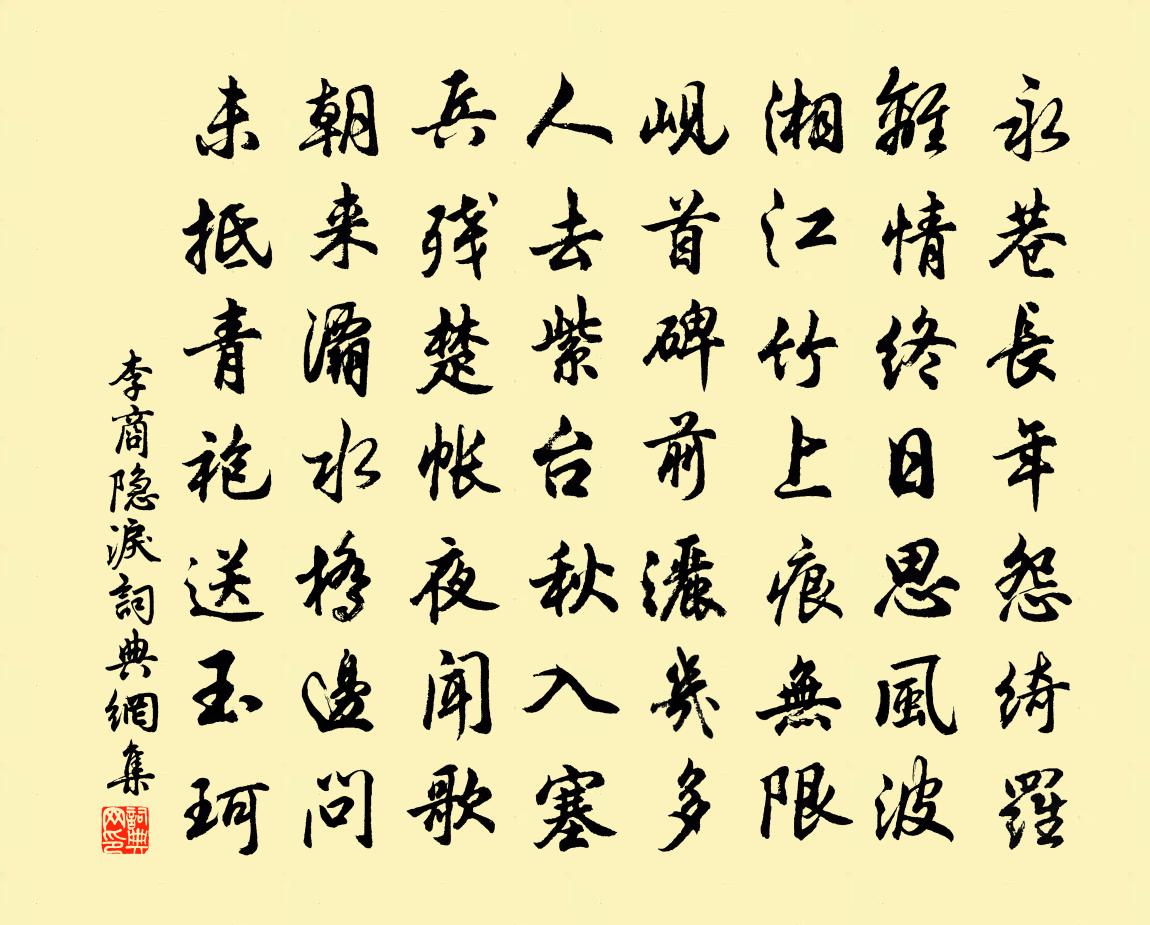 永巷長年怨綺羅
離情終日思風波
湘江竹上痕無限
峴首碑前灑幾多
人去紫台秋入塞
兵残楚帳夜聞歌
朝来灞水橋邊問
未抵青袍送玉珂
李商隐淚詞典網集
詞典网印